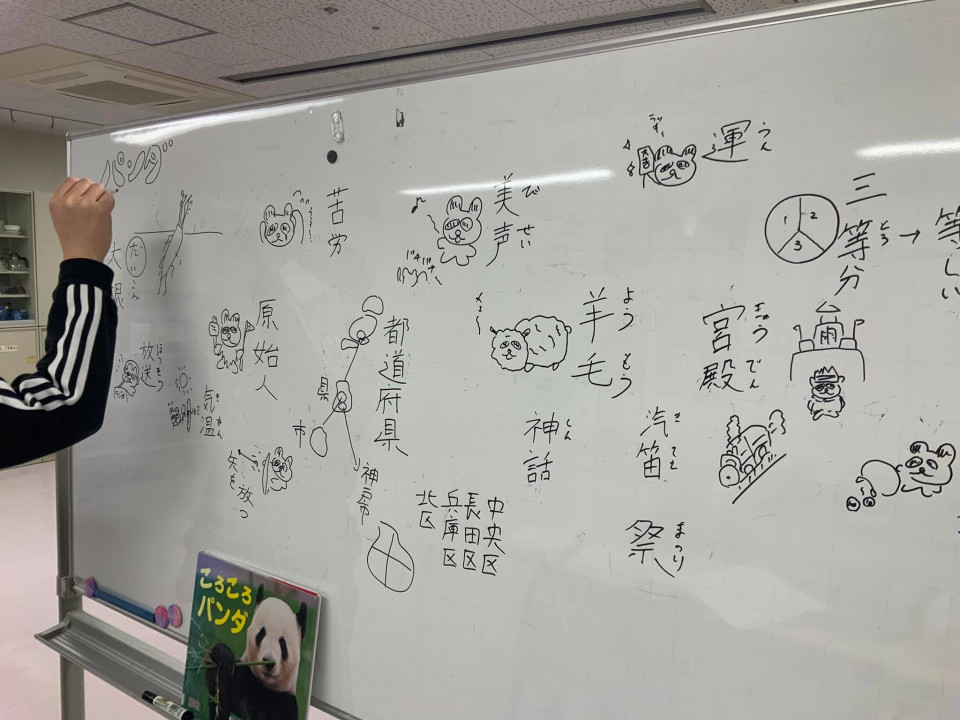 運
うん
三等分
とう
→
等しい
美声
び
せい
苦労
パンダ
大根
だい
こん
原始人
放送
ほうそう
気温
き
おん
矢を放つ
都道府県
県
市
神戸市
中央区
長田区
兵庫区
北区
羊毛
よう
もう
メェ〜
宮殿
きゅう
でん
神話
しん
汽笛
き
てき
祭
まつり
1
2
3
ころころ
パンダ